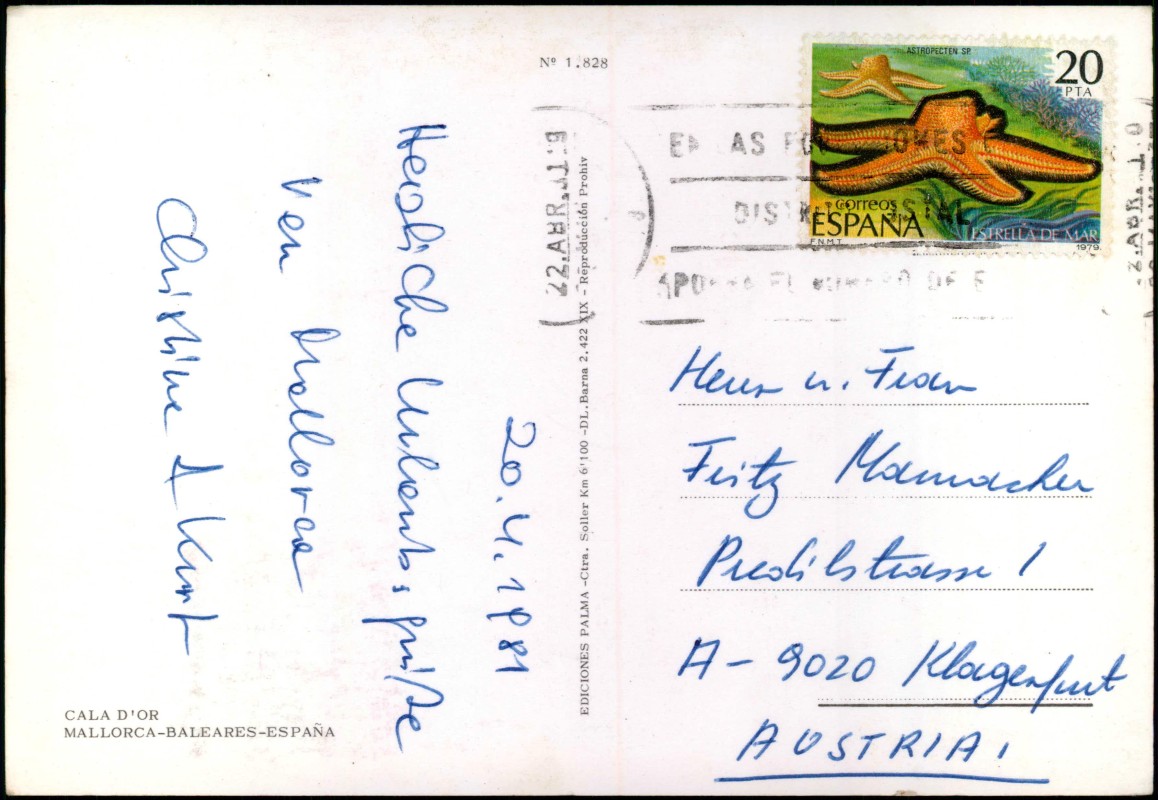 Nº 1.828
20.4.1981
Herzliche Urlaubsgrüße
von Mallorca
Christine & Kurt
CALA D'OR
MALLORCA-BALEARES-ESPAÑA
EDICIONES PALMA -Ctra. Soller Km 6'100 -DL. Barna 2.422 XIX - Reproducción Prohiv
22.ABR.81
ASTROPECTEN SP.
20
PTA
correos
ESPAÑA
F.N.M.T.
ESTRELLA DE MAR
1979
EN LAS
DIST POSTAL
EL NUMERO DE
Herr u. Frau
Fritz
Predilstrasse 1
A-9020 Klagenfurt
AUSTRIA!